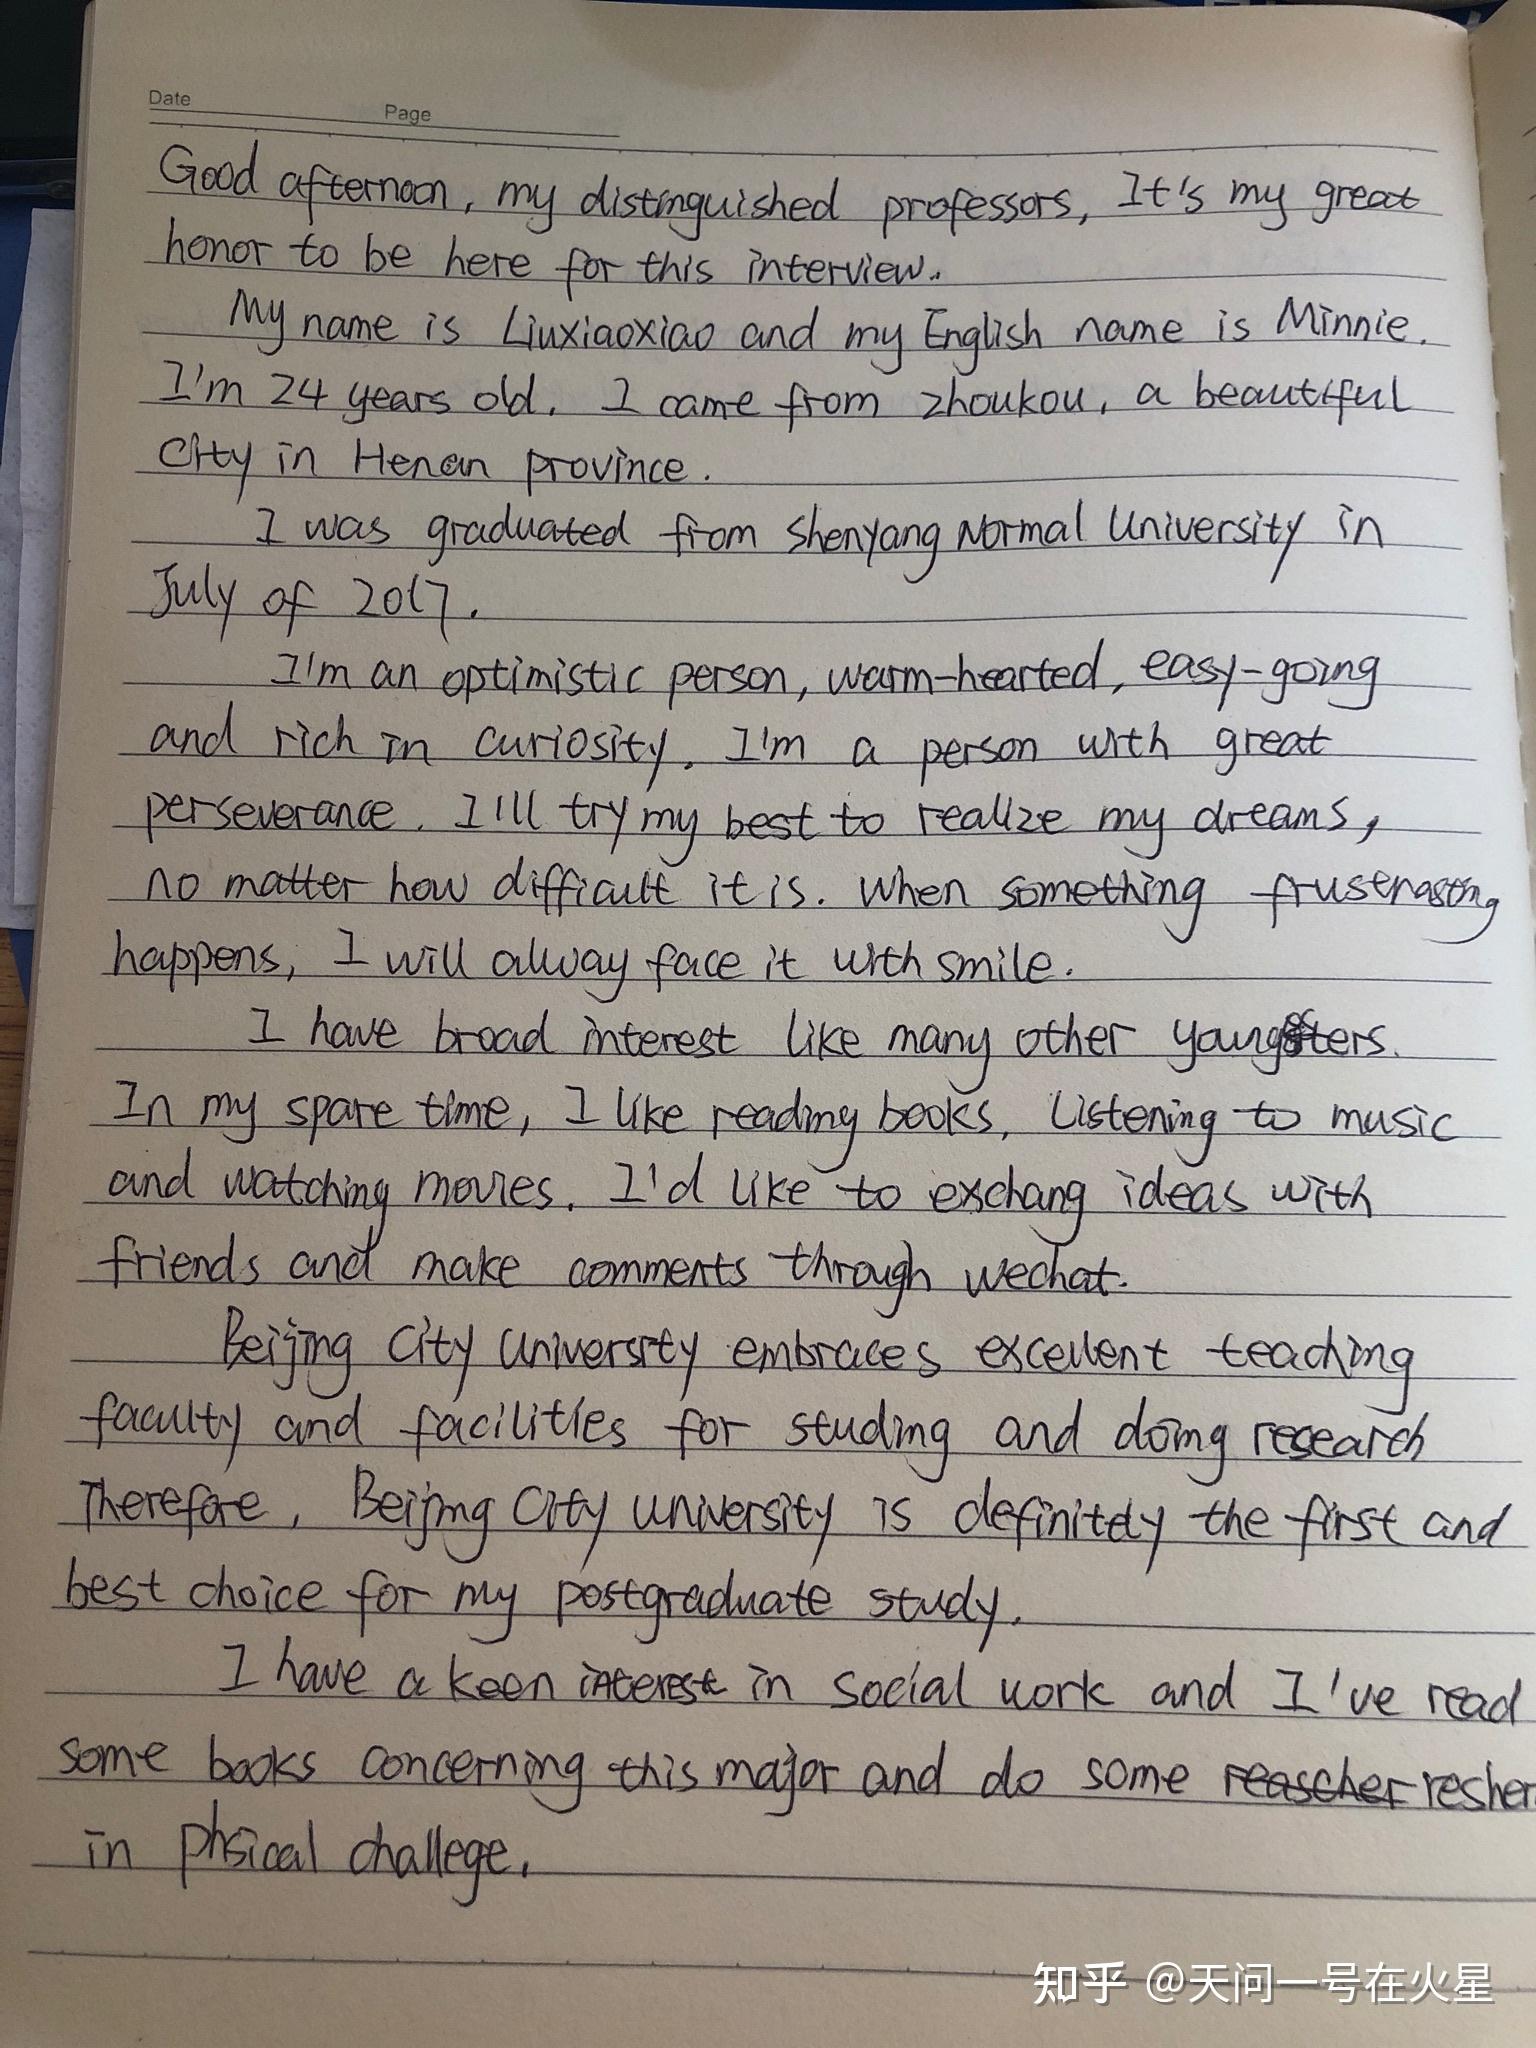 Date
Page
Good afternoon, my distinguished professors, It's my great
honor to be here for this interview.
My name is Liuxiaoxiao and my English name is Minnie.
I'm 24 years old. I came from zhoukou, a beautiful
City in Henan province.
I was graduated from Shenyang Normal University in
July of 2017.
I'm an optimistic person, warm-hearted, easy-going
and rich in curiosity. I'm a person with great
perseverance. I'll try my best to realize my dreams,
no matter how difficult it is. When something
happens, I will alway face it with smile.
I have broad interest like many other youngsters.
In my spare time, I like reading books, Listening to music
and watching movies. I'd like to exchang ideas with
friends and make comments through wechat.
Beijing City University embraces excellent teaching
faculty and facilities for studing and doing research
Therefore, Beijing City University is definitely the first and
best choice for my postgraduate study.
I have a keen interest in social work and I've read
some books concerning this major and do some
in phsical challege.
知乎 @天问一号在火星